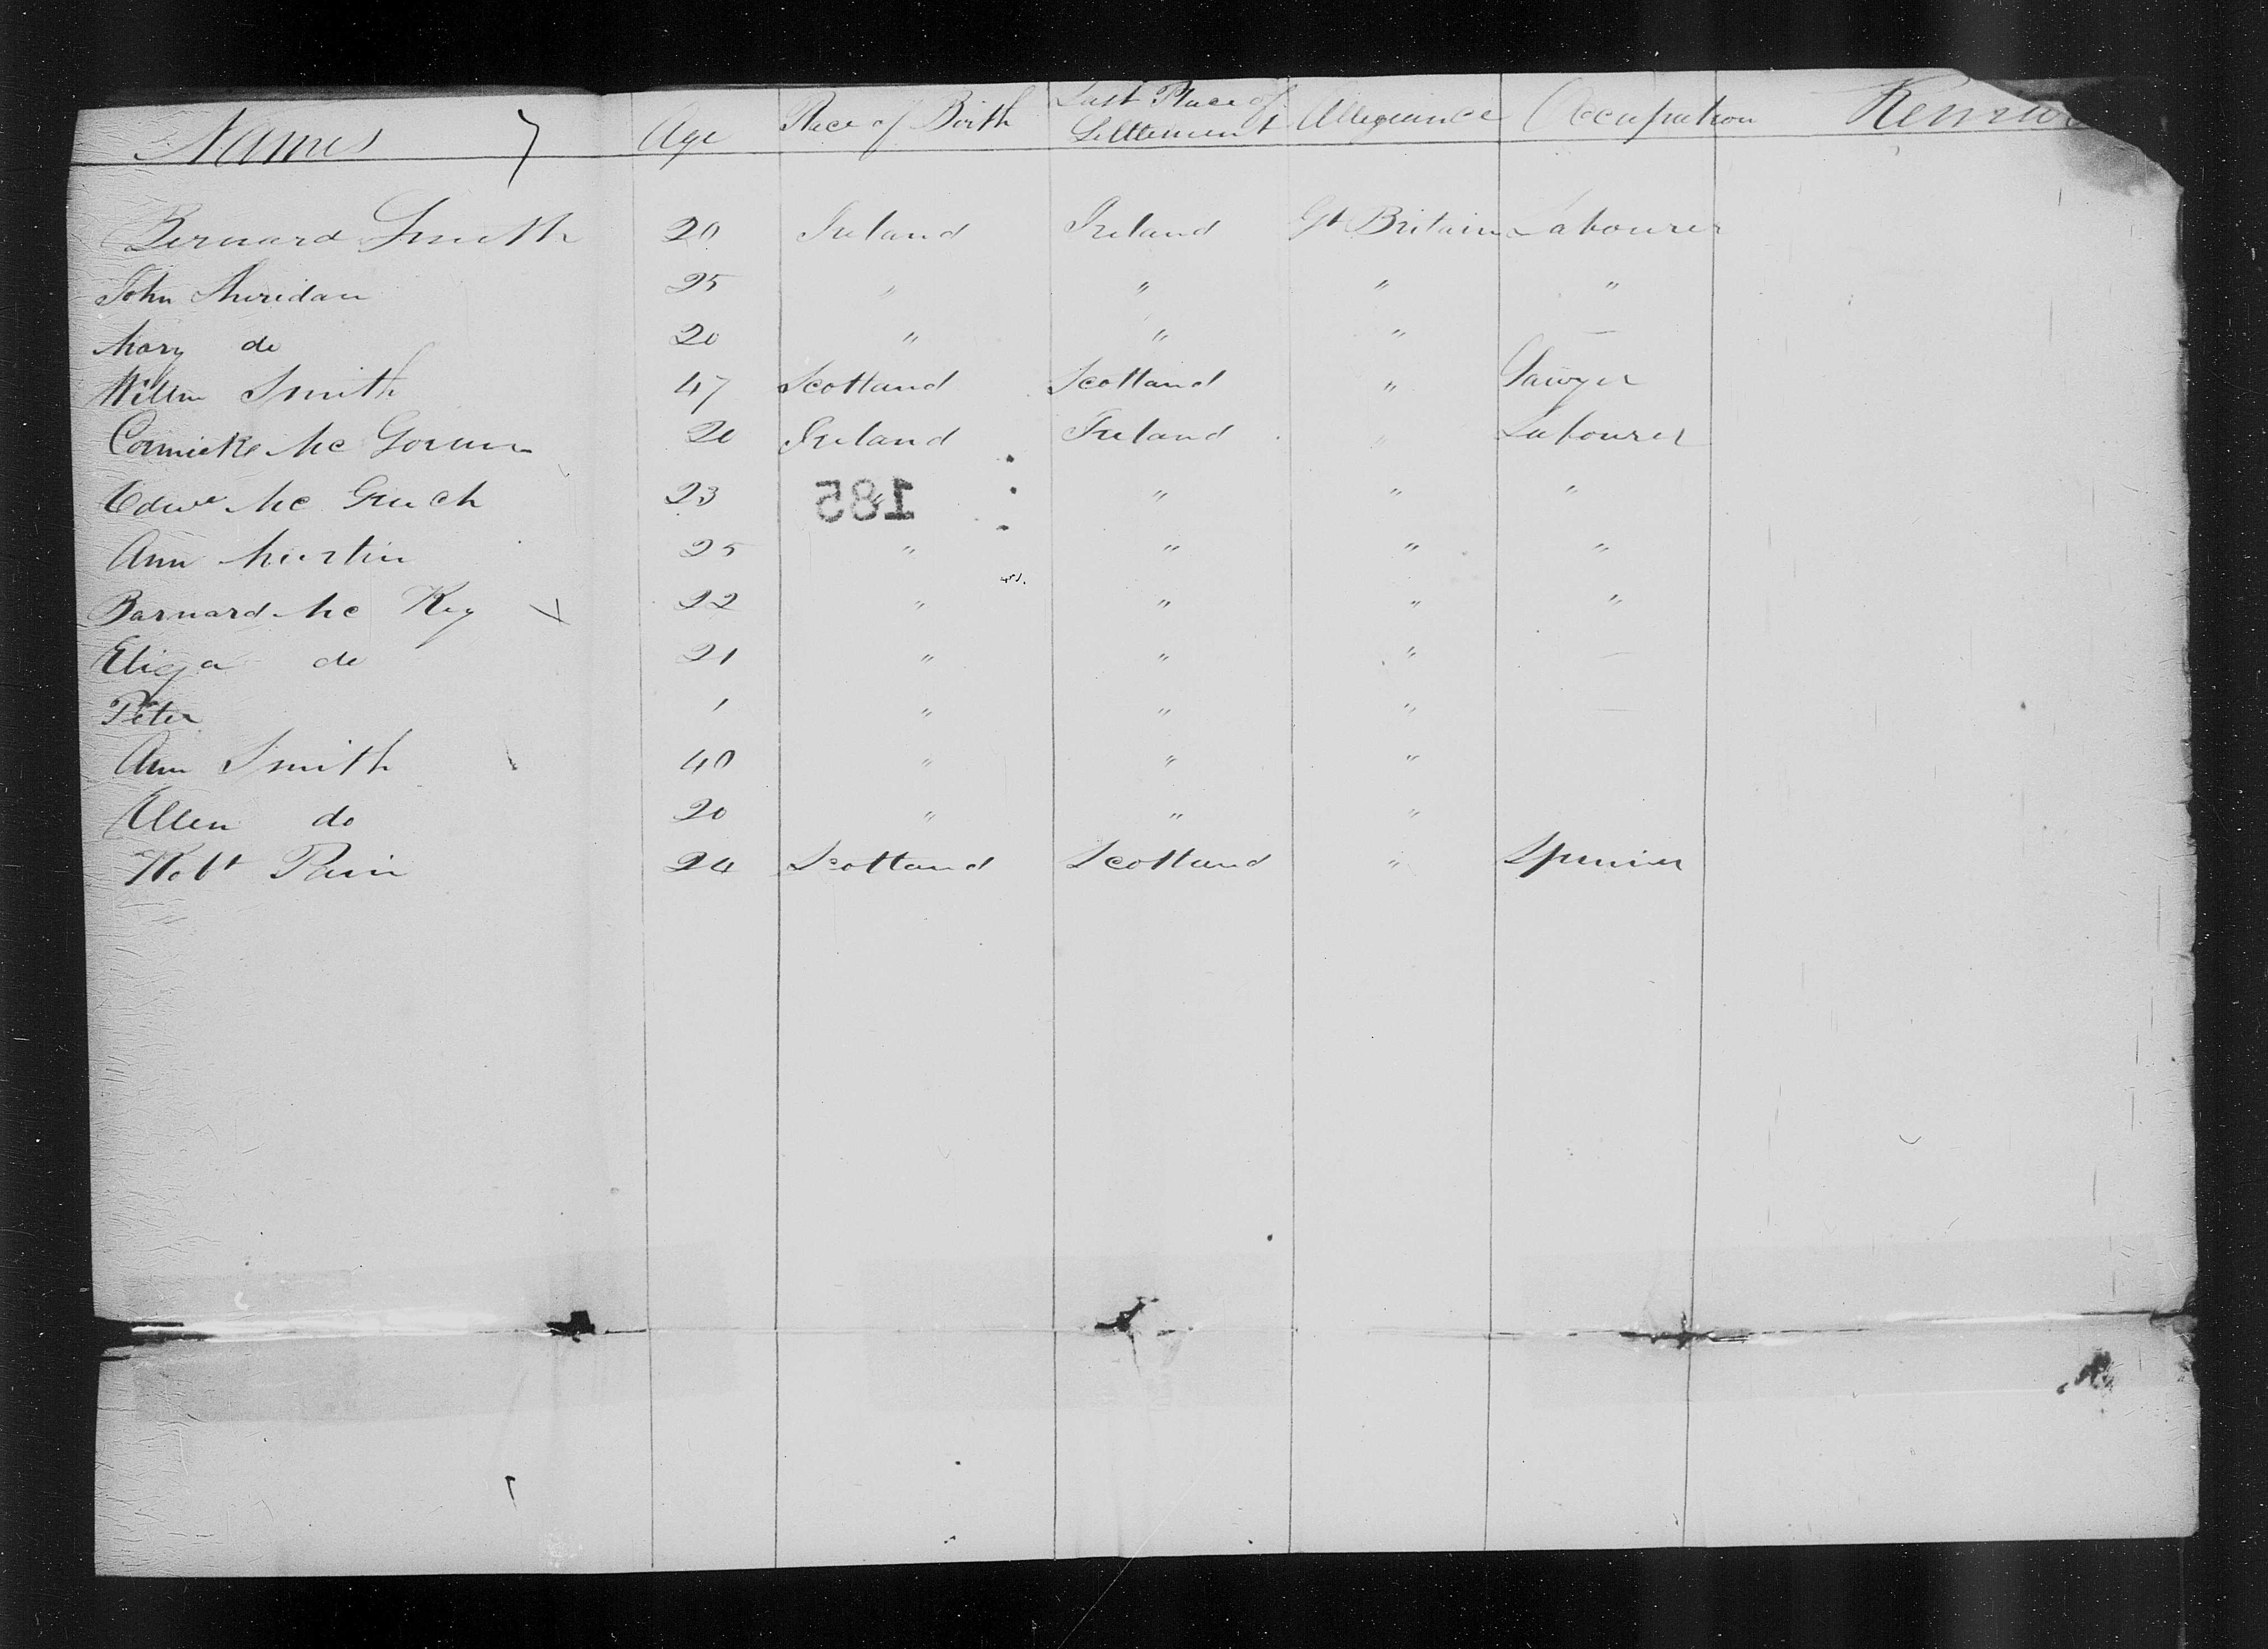 Names Age Place of Birth Last Place of Settlement Allegiance Occupation
Bernard Smith 20 Ireland Ireland Gt Britain Labourer
John Sheridan 25 " " " "
Mary do 20 " " " —
Willm Smith 47 Scotland Scotland " Sawyer
Cormick Mc Govern 20 Ireland Ireland " Labourer
Edwd Mc 23 " " " "
185
Ann Martin 25 " " " "
Barnard Mc Key 22 " " " "
Eliza do 21 " " " —
Peter 1 " " " —
Ann Smith 40 " " "
Ellen do 20 " " "
Robt Pain 24 Scotland Scotland "